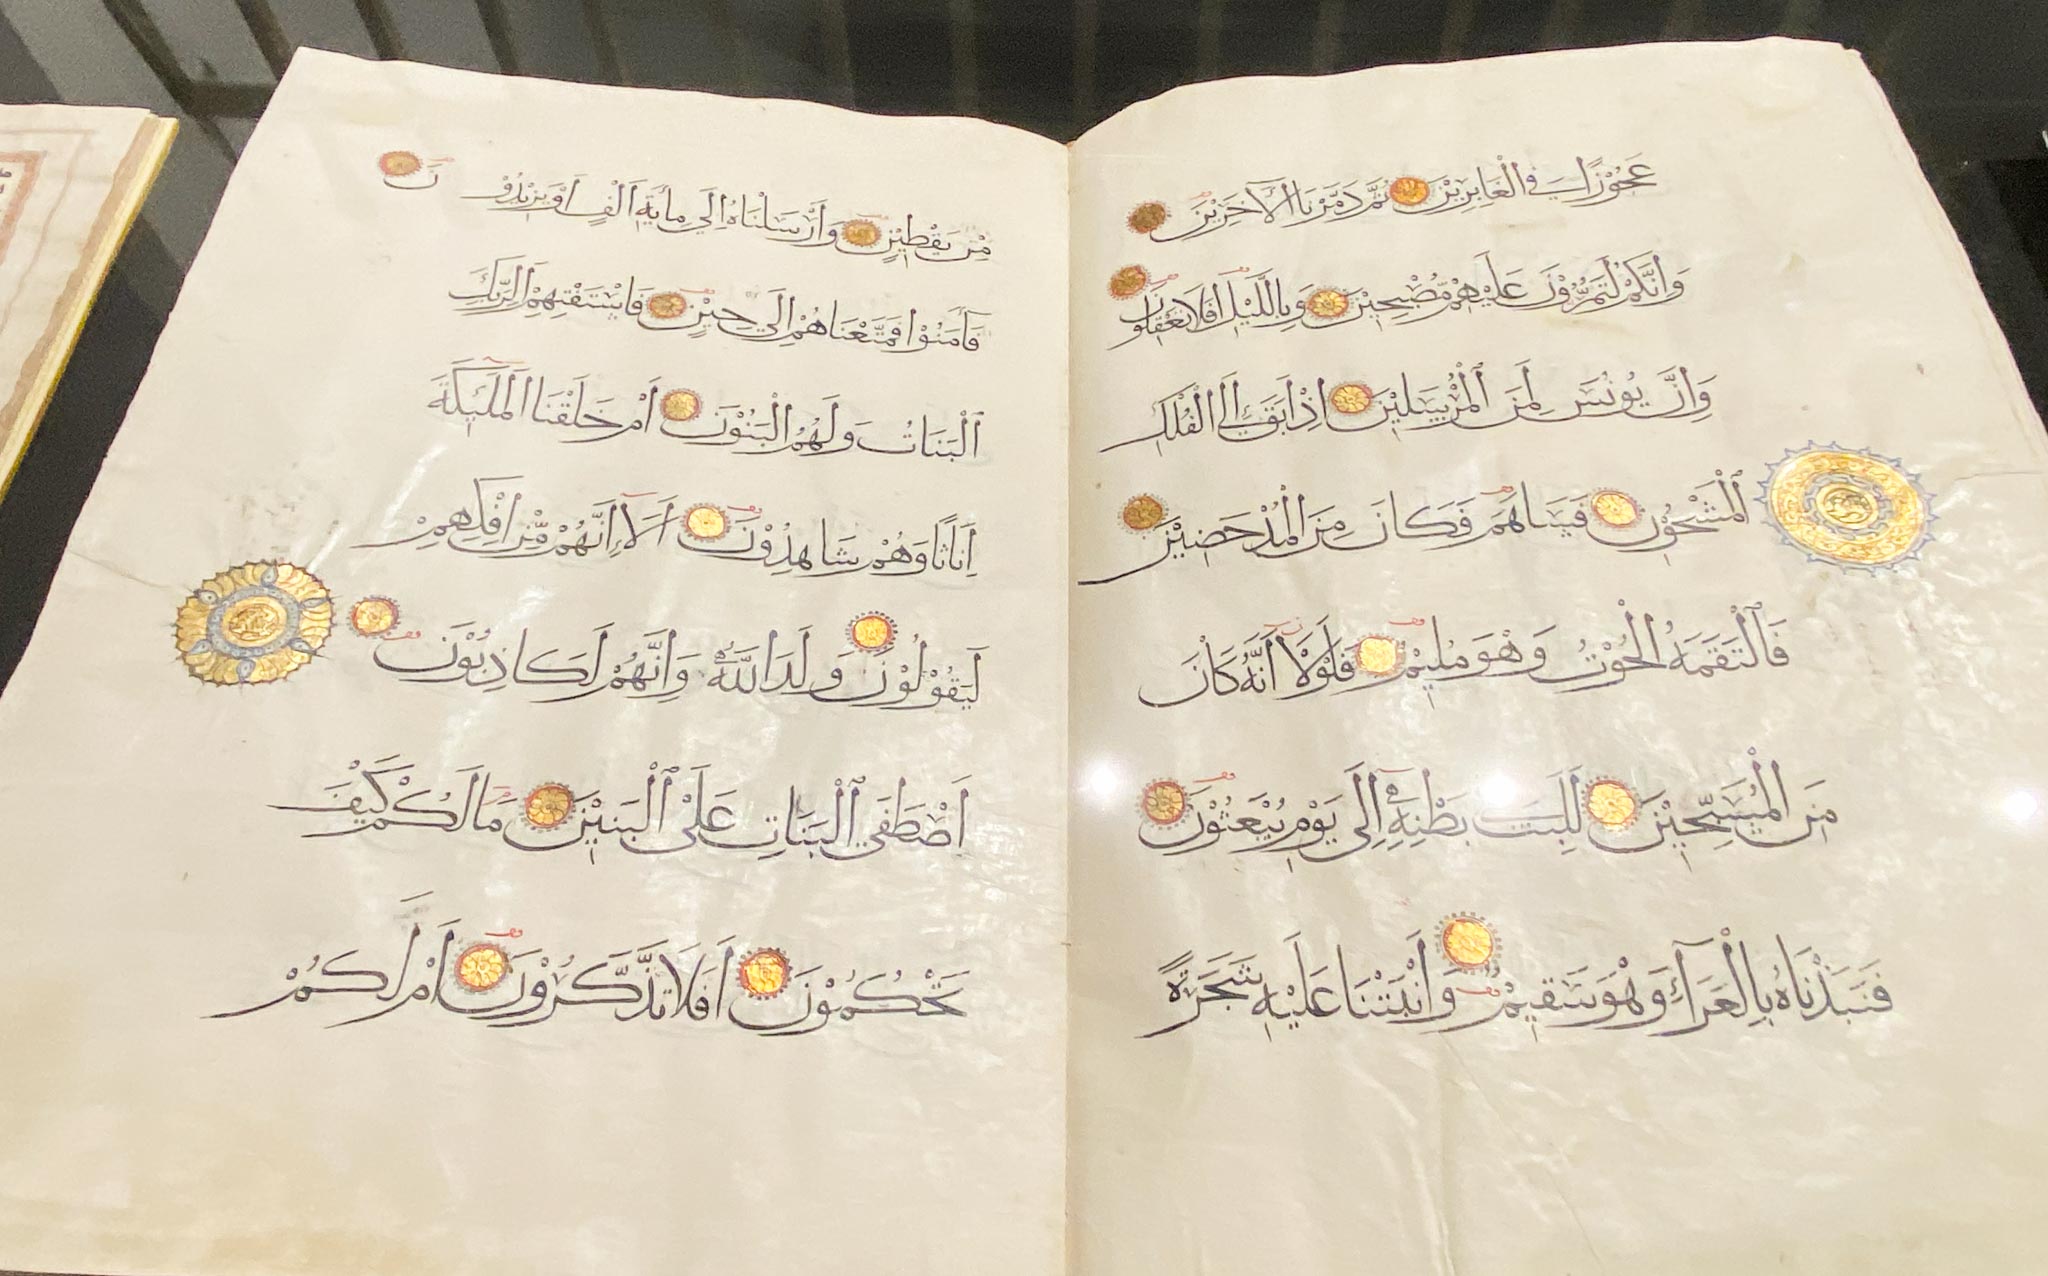 عَجُوْزًا فِي الْغَابِرِيْنَ ثُمَّ دَمَّرْنَا الْآخَرِيْنَ
وَاِنَّكُمْ لَتَمُرُّوْنَ عَلَيْهِمْ مُصْبِحِيْنَ وَبِاللَّيْلِ اَفَلَا تَعْقِلُوْنَ
وَاِنَّ يُوْنُسَ لَمِنَ الْمُرْسَلِيْنَ اِذْ اَبَقَ اِلَى الْفُلْكِ
الْمَشْحُوْنِ فَسَاهَمَ فَكَانَ مِنَ الْمُدْحَضِيْنَ
فَالْتَقَمَهُ الْحُوْتُ وَهْوَ مُلِيْمٌ فَلَوْلَا اَنَّهُ كَانَ
مِنَ الْمُسَبِّحِيْنَ لَلَبِثَ فِي بَطْنِهِ اِلَى يَوْمِ يُبْعَثُوْنَ
فَنَبَذْنَاهُ بِالْعَرَآءِ وَهْوَ سَقِيْمٌ وَاَنْبَتْنَا عَلَيْهِ شَجَرَةً
مِنْ يَقْطِيْنٍ وَاَرْسَلْنَاهُ اِلَى مِايَةِ اَلْفٍ اَوْ يَزِيْدُوْنَ
فَآمَنُوْا فَمَتَّعْنَاهُمْ اِلَى حِيْنٍ فَاسْتَفْتِهِمْ اَلِرَبِّكَ
الْبَنَاتُ وَلَهُمُ الْبَنُوْنَ اَمْ خَلَقْنَا الْمَلٰٓئِكَةَ
اِنَاثًا وَهُمْ شَاهِدُوْنَ اَلَا اِنَّهُمْ مِّنْ اِفْكِهِمْ
لَيَقُوْلُوْنَ وَلَدَ اللّٰهُ وَاِنَّهُمْ لَكَاذِبُوْنَ
اَصْطَفَى الْبَنَاتِ عَلَى الْبَنِيْنَ مَا لَكُمْ كَيْفَ
تَحْكُمُوْنَ اَفَلَا تَذَّكَّرُوْنَ اَمْ لَكُمْ